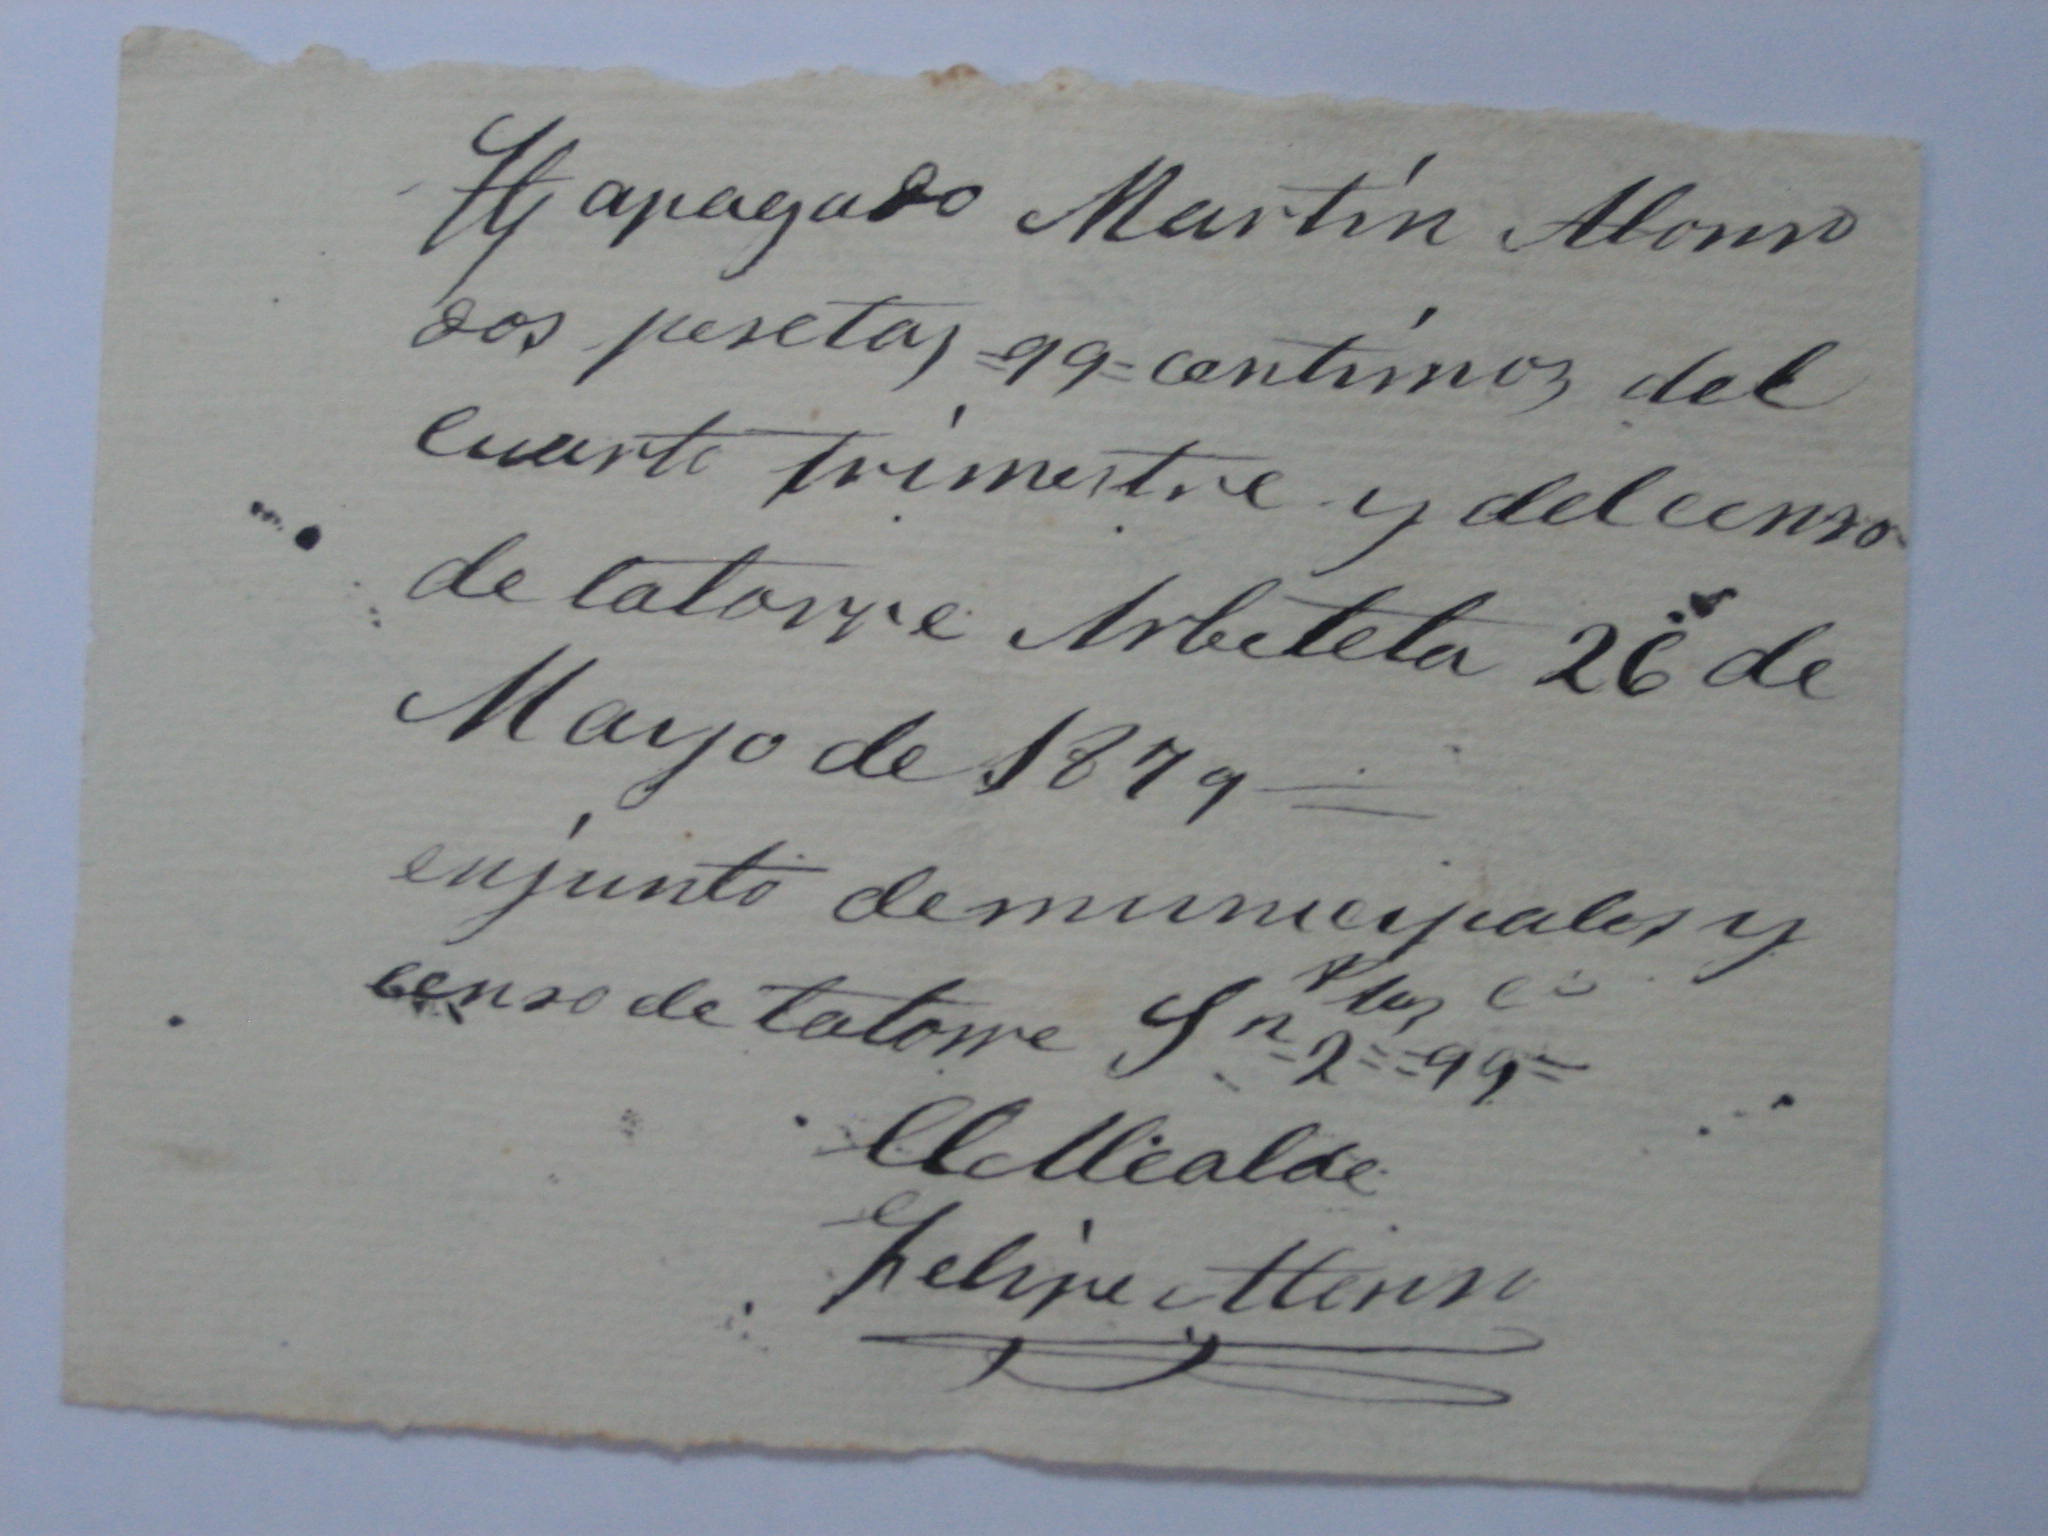 Hapagado Martín Alonso
dos pesetas =99= centimos del
cuarto trimestre y del censo
de Latorre Arbeteta 26 de
Mayo de 1879
enjunto de municipales y
censo de Latorre Sn =2= =99=
Ptas cs
El Alcalde
Felipe Alonso